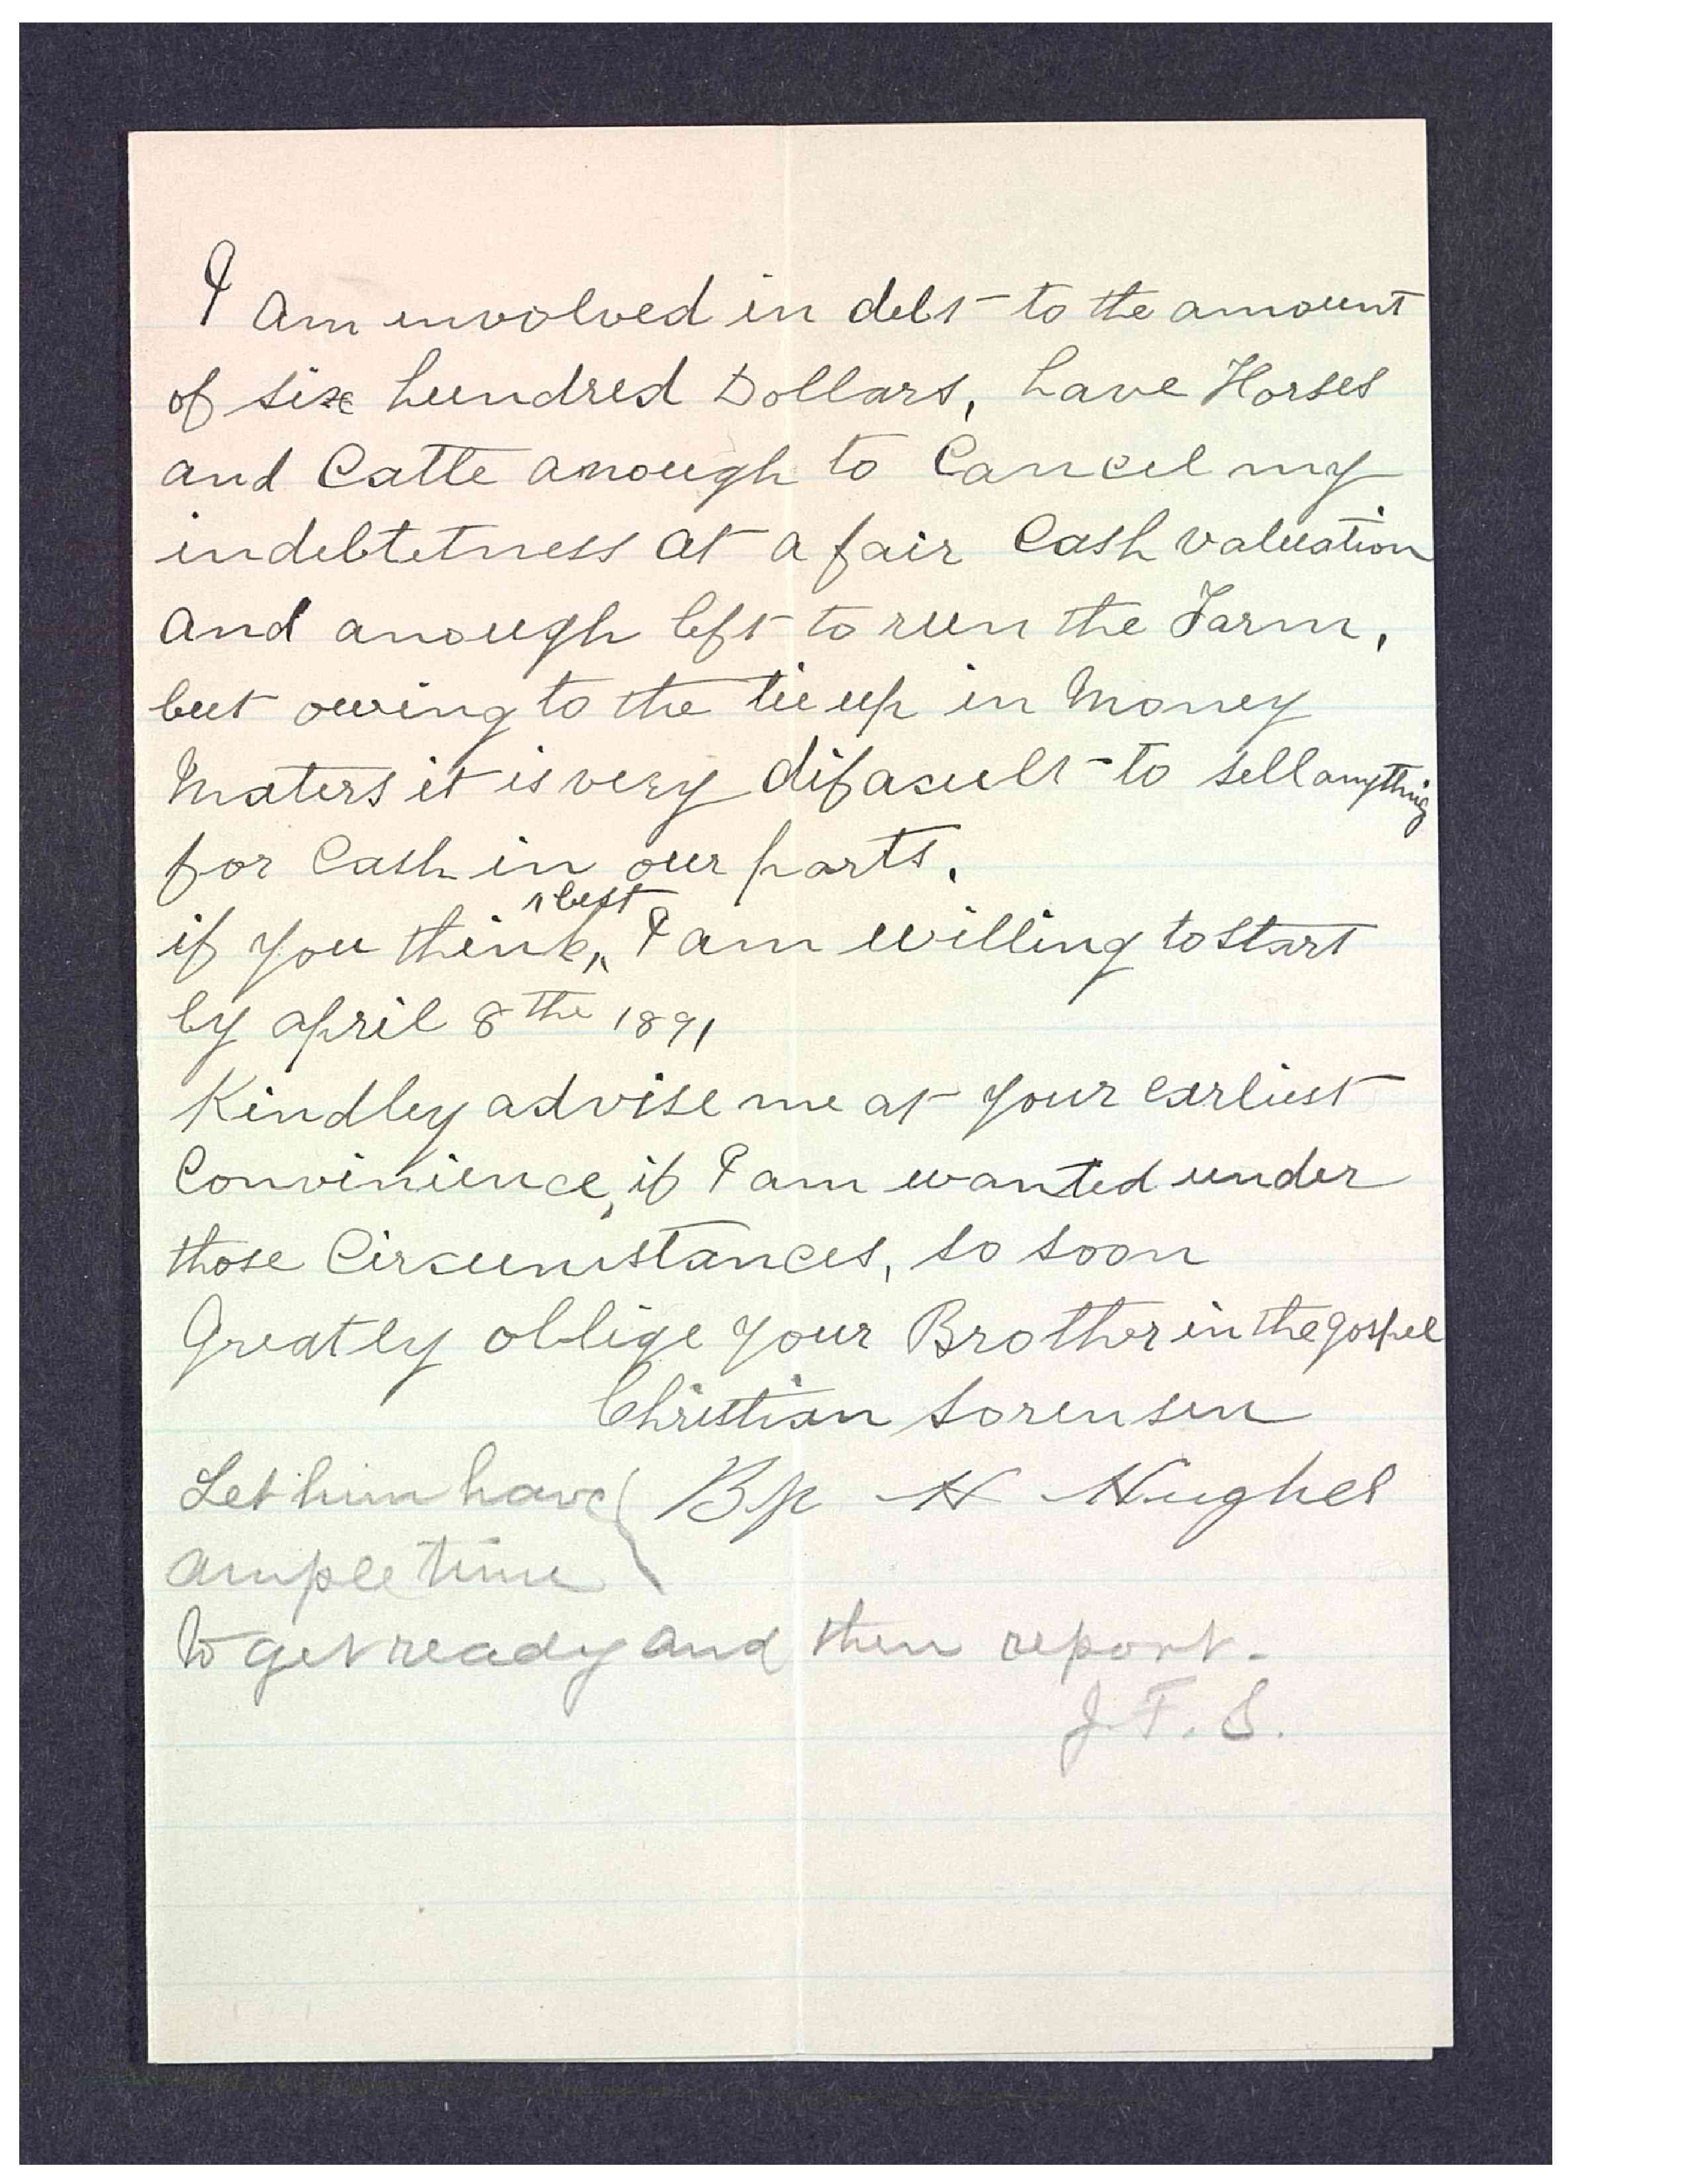 I am involved in debt to the amount
of six hundred Dollars, have Horses
and Catte anough to Cancel my
indebtetness at a fair Cash valuation
and anough left to run the Farm,
but owing to the tie up in Money
Maters it is very difacult to sell anything
for Cash in our parts.
if you think, best I am willing to start
by april 8the 1891
Kindley advise me at your earliest
Convinience, if I am wanted under
those Circumstances, so soon
Greatly oblige your Brother in the gospel
Christian Sorensen
Let him have Bp H Hughes
ample time
to get ready and then report.
J. F. S.